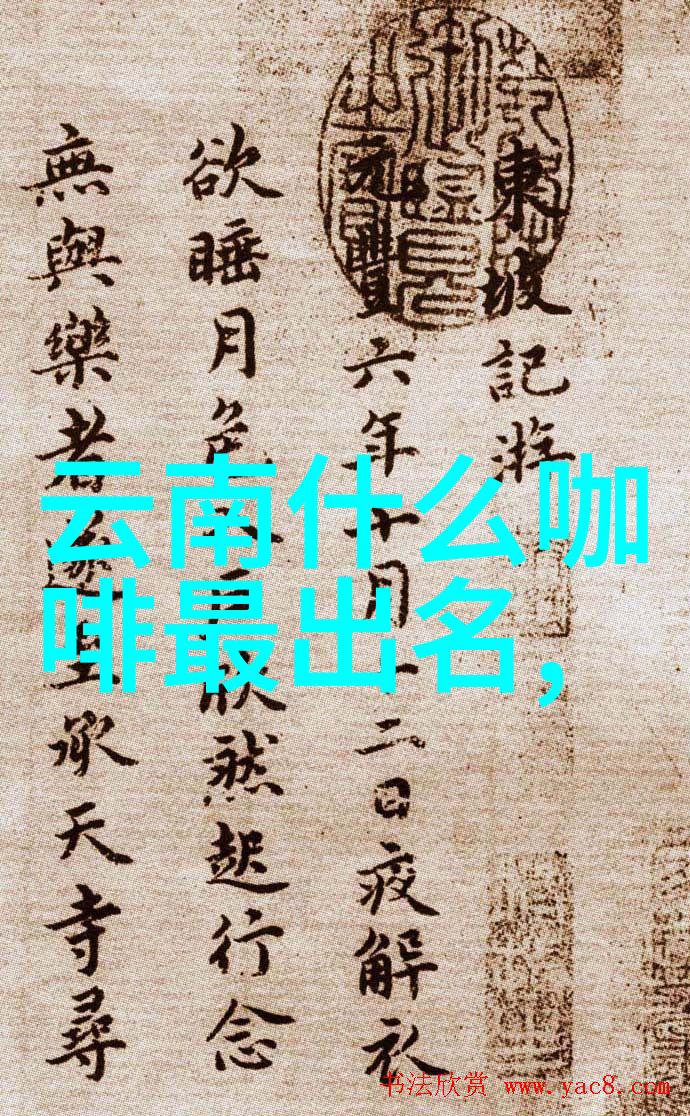 東坡記游
元豐六年十月十二日夜解衣
欲睡月色欣然起行念
無與樂者遂至承天寺尋
云南什么咖
啡最出名,
书法欣赏 www.yac8.com